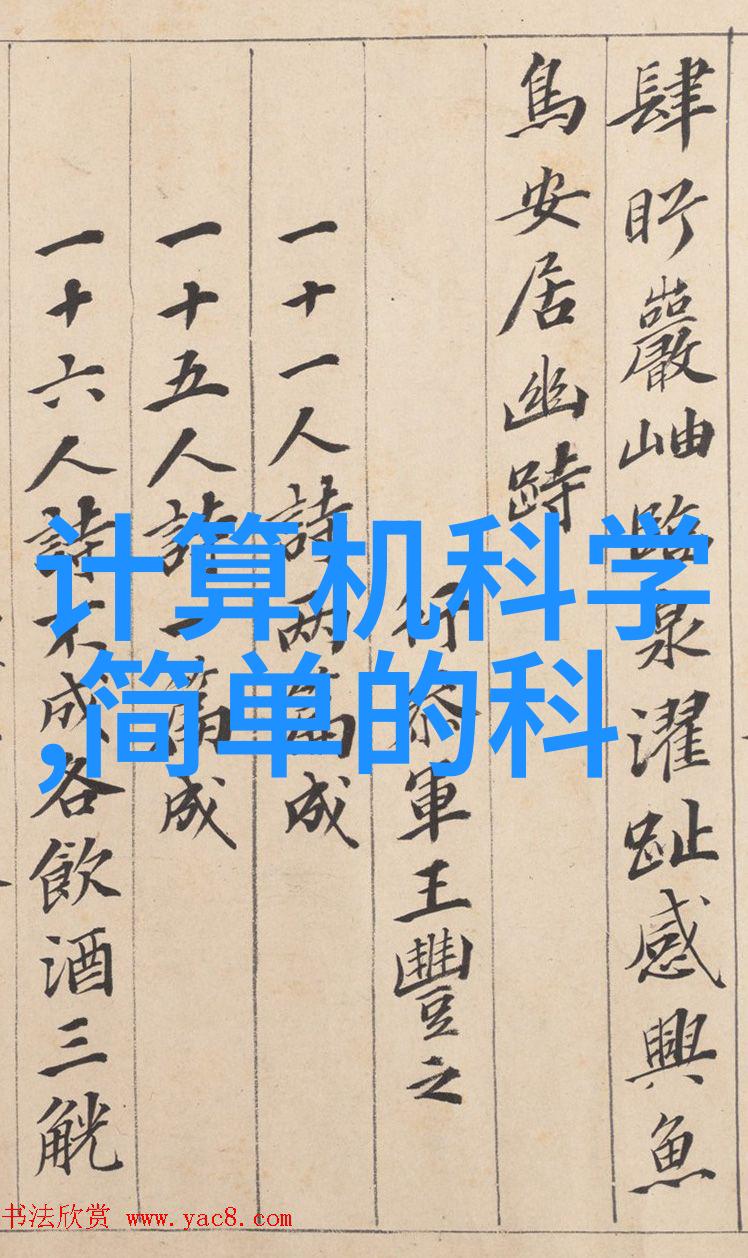 肆盱巖岫臨泉濯趾感興魚
鳥安居幽跱
行叅軍王豐之
一十一人詩兩篇成
一十五人詩一篇成
一十六人詩不成各飲酒三觥
计算机科学
,简单的科
书法欣赏 www.yac8.com